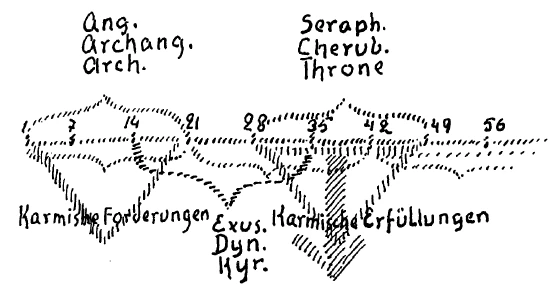 Ang.
Archang.
Arch.
Seraph.
Cherub.
Throne
1 7 14 21 28 35 42 49 56
Karmische Forderungen
Karmische Erfüllungen
Exus.
Dyn.
Kyr.